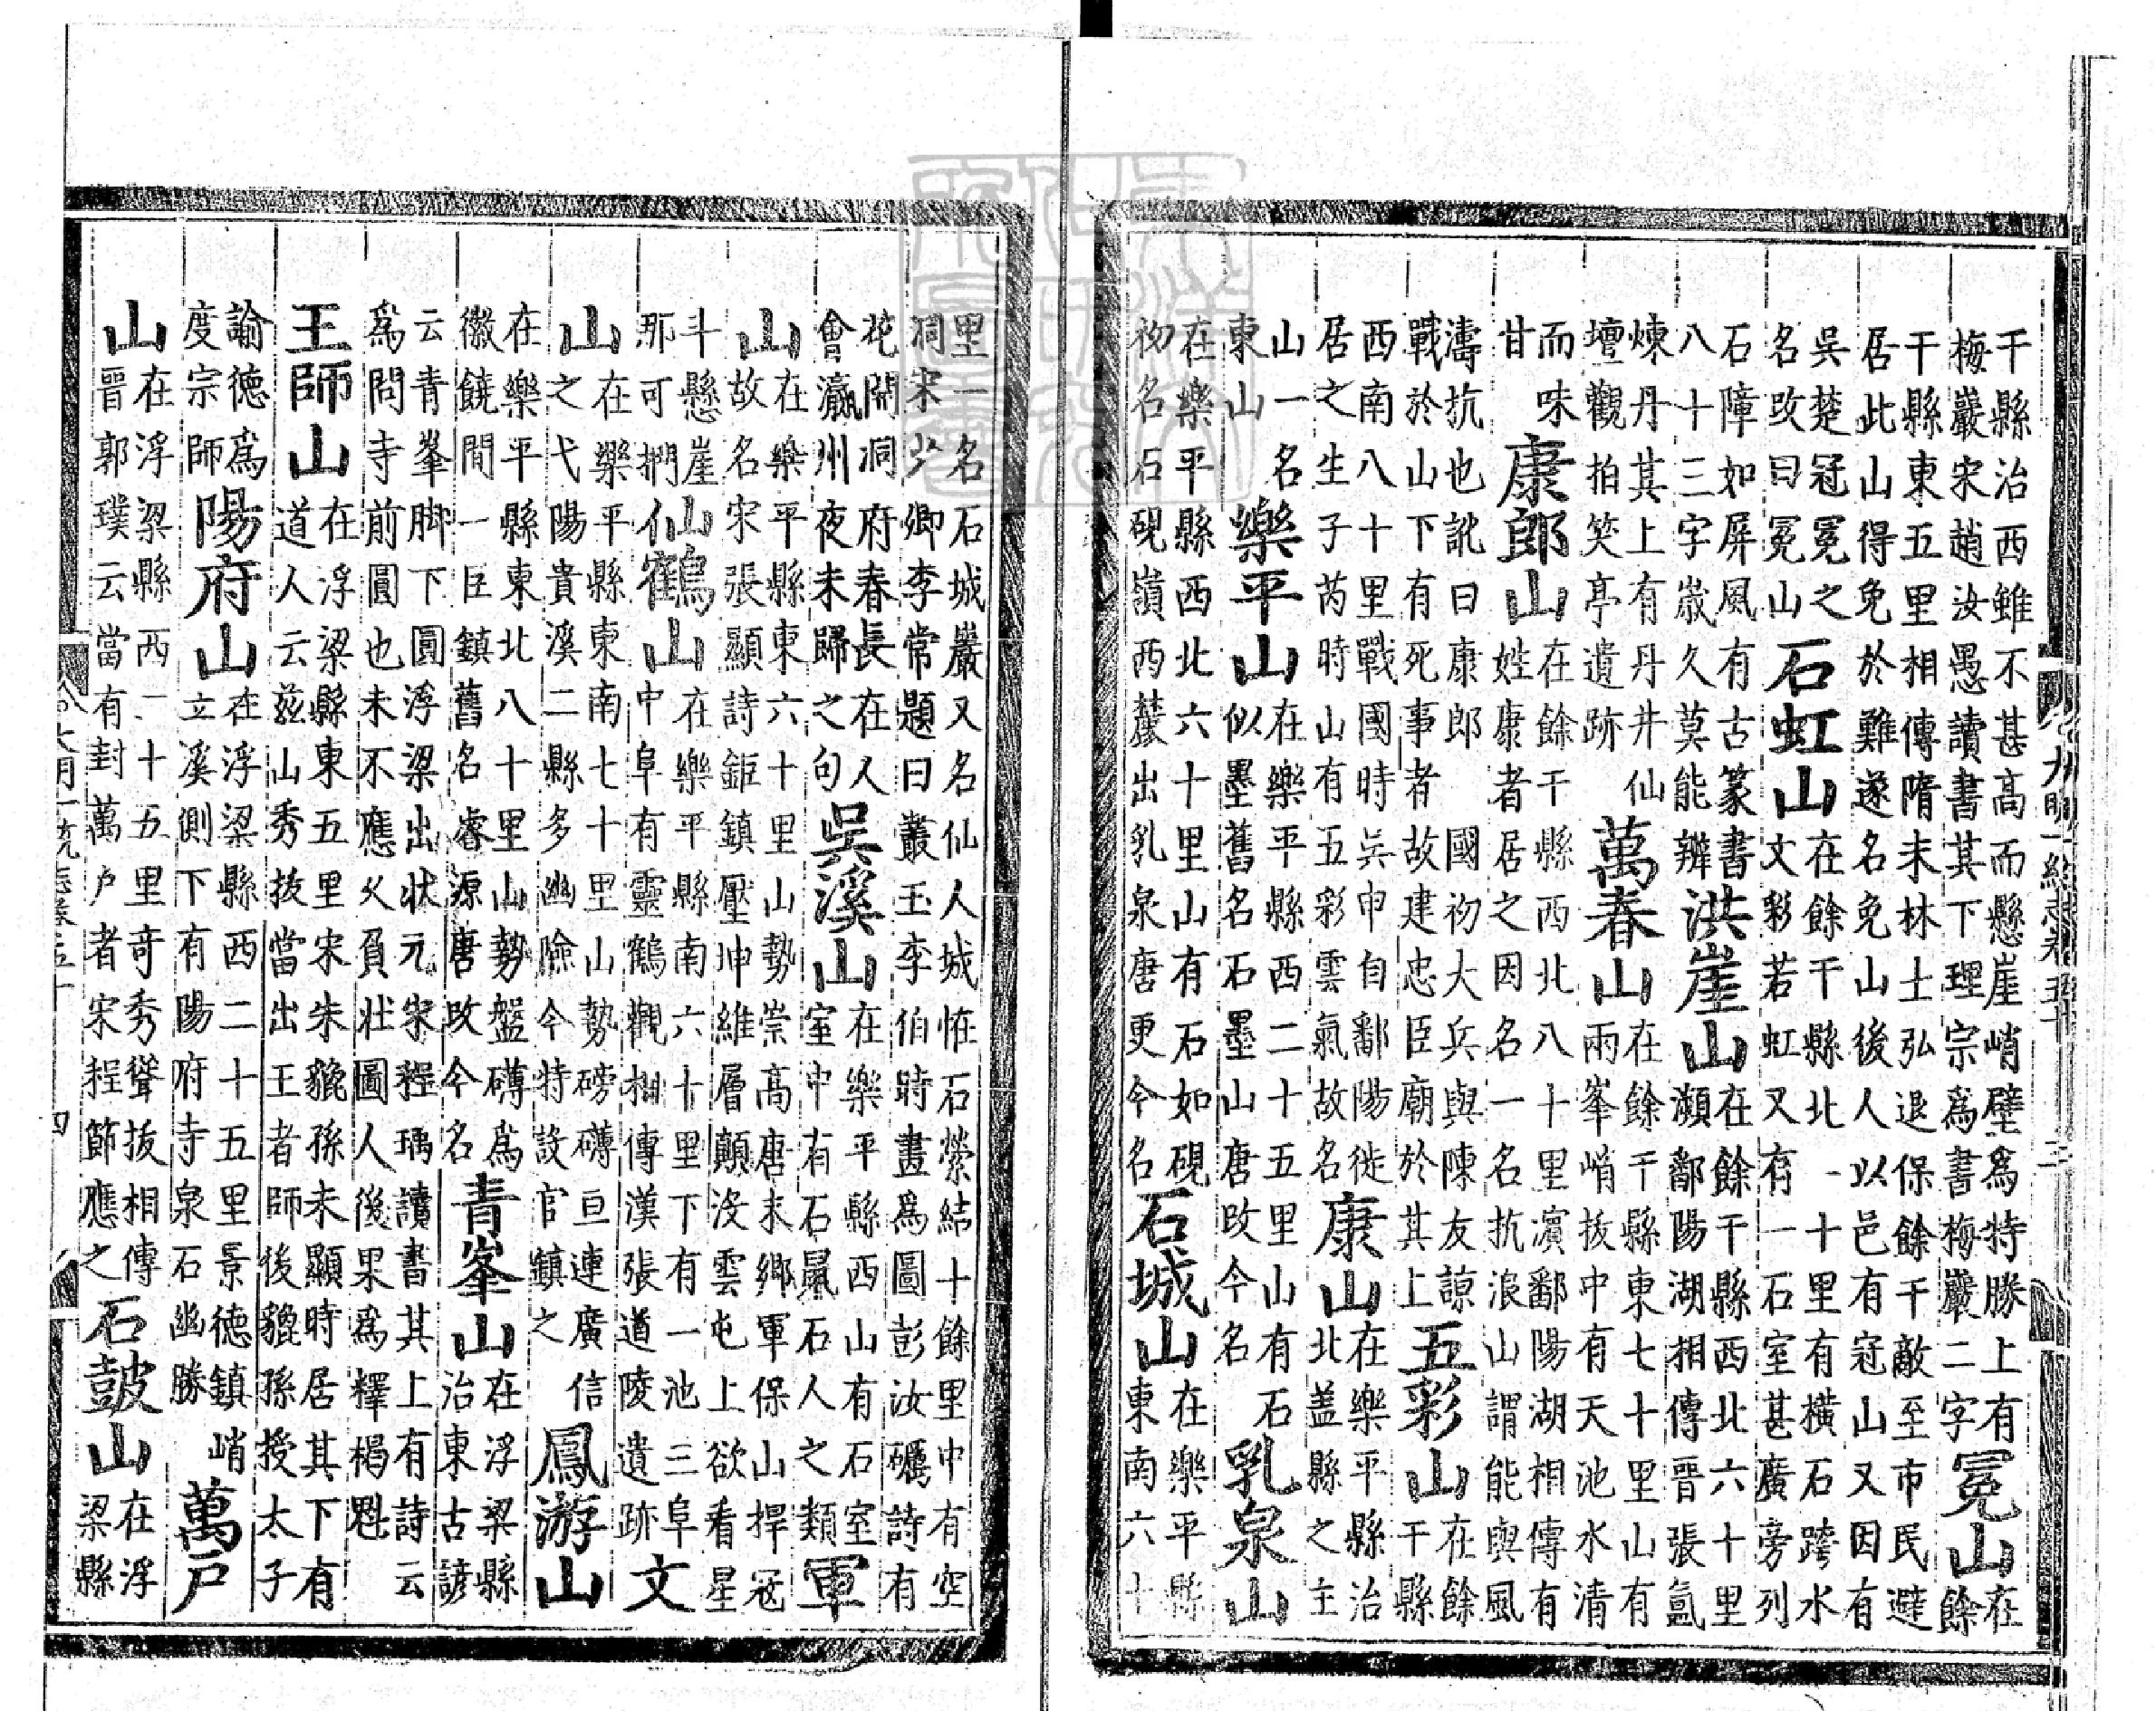 千縣治西雖不甚高而懸崖峭壁爲特勝上有
梅巖宋趙汝愚讀書其下理宗爲書梅巖二字
冕山
在
餘
干縣東五里相傳隋末林士弘退保餘干敵至市民避
居此山得免於難遂名免山後人以邑有冠山又因有
吳楚冠冕之
名攺曰冕山
石虹山
在餘干縣北一十里有横石跨水
文彩若虹又有一石室甚廣旁列
石障如屏風有古篆書
八十三字歲久莫能辨
洪崖山
在餘干縣西北六十里
瀕鄱陽湖相傳晉張氳
煉丹其上有丹井仙
壇觀拍笑亭遺跡
萬春山
在餘干縣東七十里山有
兩峯峭拔中有天池水清
而味
甘
康郎山
在餘干縣西北八十里濵鄱陽湖相傳有
姓康者居之因名一名抗浪山謂能與風
濤抗也訛曰康郎 國初大兵與陳友諒
戰於山下有死事者故建忠臣廟於其上
五彩山
在餘
干縣
西南八十里戰國時吳申自鄱陽徙
居之生子芮時山有五彩雲氣故名
康山
在樂平縣治
北盖縣之主
山一名
東山
樂平山
在樂平縣西二十五里山有石
似墨舊名石墨山唐攺今名
乳泉山
在樂平縣西北六十里山有石如硯
初名石硯嶺西麓出乳泉唐更今名
石城山
在樂平縣
東南六十
里一名石城巖又名仙人城恠石縈結十餘里中有空
洞宋少卿李常題曰叢玉李伯時畫爲圖彭汝礪詩有
花開洞府春長在人
會瀛州夜未歸之句
吳溪山
在樂平縣西山有石室
室中有石鼠石人之類
軍
山
在樂平縣東六十里山勢崇高唐末鄉軍保山捍冦
故名宋張顯詩鉅鎮壓坤維層顛没雲屯上欲看星
斗懸崖
那可捫
仙鶴山
在樂平縣南六十里下有一池三阜
中阜有靈鶴觀相傳漢張道陵遺跡
文
山
在樂平縣東南七十里山勢磅礴亘連廣信
之弋陽貴溪二縣多幽險今特設官鎮之
鳳游山
在樂平縣東北八十里山勢盤礴爲
徽饒間一巨鎮舊名睿源唐攺今名
青峯山
在浮梁縣
治東古諺
云青峯脚下圓浮梁出状元宋程瑀讀書其上有詩云
爲問寺前圓也未不應久負状圖人後果爲釋楬魁
王師山
在浮梁縣東五里宋朱貔孫未顯時居其下有
道人云兹山秀拔當出王者師後貔孫授太子
諭德爲
度宗師
陽府山
在浮梁縣西二十五里景德鎮峭
立溪側下有陽府寺泉石幽勝
萬戸
山
在浮梁縣西一十五里竒秀聳拔相傳
晉郭璞云當有封萬戸者宋程節應之
石鼓山
在浮
梁縣
大明一統志卷五十
四